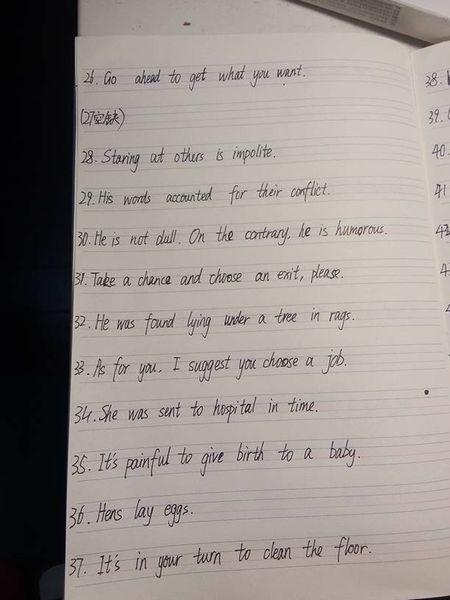 26. Go ahead to get what you want.
(27空缺)
28. Staring at others is impolite.
29. His words accounted for their conflict.
30. He is not dull. On the contrary, he is humorous.
31. Take a chance and choose an exit, please.
32. He was found lying under a tree in rags.
33. As for you. I suggest you choose a job.
34. She was sent to hospital in time.
35. It's painful to give birth to a baby.
36. Hens lay eggs.
37. It's in your turn to clean the floor.
38.
39.
40.
41